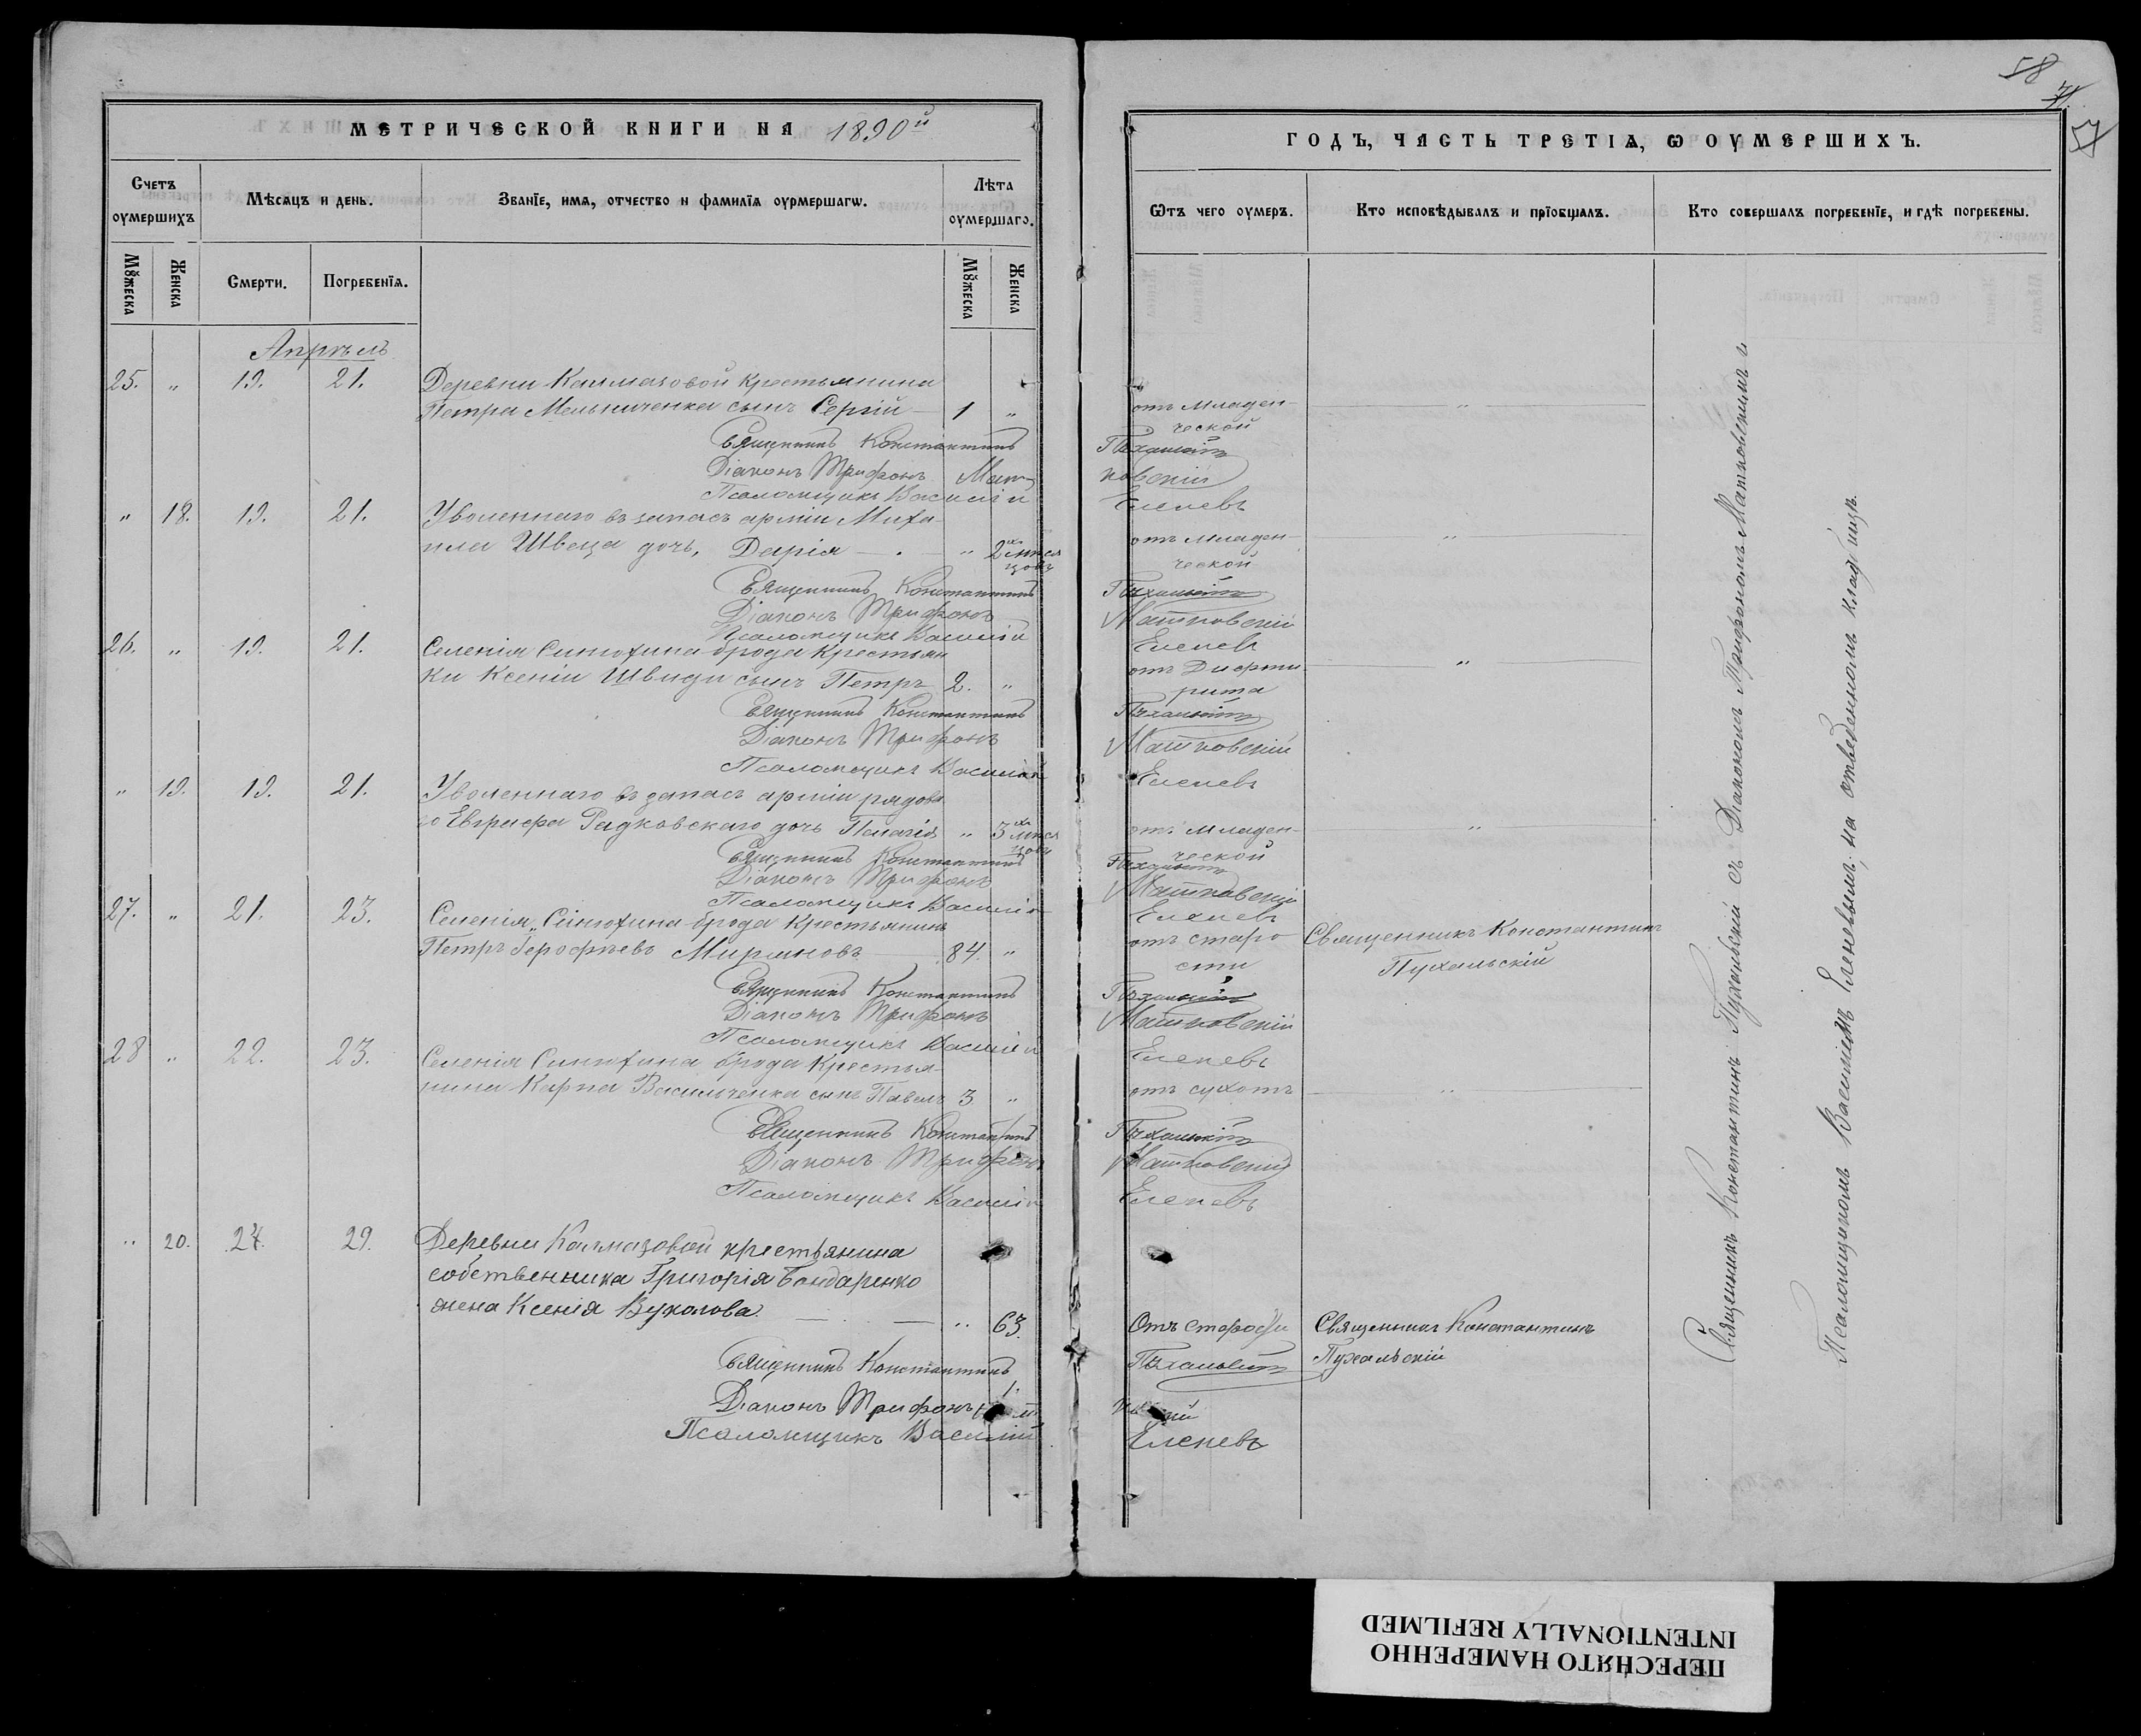 МЕТРИЧЕСКОЙ КНИГИ НА 1890й
ГОДЪ, ЧАСТЬ ТРЕТІѦ, Ѡ ОУМЕРШИХЪ.
58
Счетъ оумершихъ
Мѣсѧцъ и день.
Званїе, имѧ, отчество и фамилїѧ оурмершагѡ.
Лѣта оумершаго.
Ѿтъ чего оумеръ.
Кто исповѣдывалъ и прїобщалъ.
Кто совершалъ погребенїе, и гдѣ погребены.
Мꙋжеска
Женска
Смерти.
Погребенїѧ.
Мꙋжеска
Женска
Апрѣль
25. " 19. 21. Деревни Калмазовой крестьянина
Петра Мельниченка сынъ Сергій 1 " отъ младен-
ческой
Священникъ Константинъ Пухальскій
Діаконъ Трифонъ Матковскій
Псаломщикъ Василій Еленевъ
" 18. 19. 21. Уволеннаго въ запасъ арміи Миха-
ила Швеца дочь, Дарія " 2хъ мѣся
цовъ отъ младен-
ческой
Священникъ Константинъ Пухальскій
Діаконъ Трифонъ Матковскій
Псаломщикъ Василій Еленевъ
26. " 19. 21. Селенія Синюхина брода крестьян
ки Ксеніи Швиди сынъ Петръ 2. " отъ Дифте
рита
Священникъ Константинъ Пухальскій
Діаконъ Трифонъ Матковскій
Псаломщикъ Василій Еленевъ
" 19. 19. 21. Уволеннаго въ запасъ арміи рядова
го Евграфа Радковскаго дочь Пелагія " 3хъ мѣся
цовъ отъ младен-
ческой
Священникъ Константинъ Пухальскій
Діаконъ Трифонъ Матковскій
Псаломщикъ Василій Еленевъ
27. " 21. 23. Селенія Синюхина брода крестьянинъ
Петръ Мирановъ 84. " отъ старо
сти
Священникъ Константинъ
Пухальскій
Священникъ Константинъ Пухальскій
Діаконъ Трифонъ Матковскій
Псаломщикъ Василій Еленевъ
28 " 22. 23. Селенія Синюхина брода крестья-
нина Карпа Васильченка сынъ Павелъ 3 " отъ сухотъ
Священникъ Константинъ Пухальскій
Діаконъ Трифонъ Матковскій
Псаломщикъ Василій Еленевъ
" 20. 27. 29. Деревни Калмазовой крестьянина
собственника Григорія Бондаренко
жена Ксенія Вуколова. " 63. Отъ старости
Священникъ Константинъ
Пухальскій
Священникъ Константинъ Пухальскій
Діаконъ Трифонъ
Псаломщикъ Василій Еленевъ
Священникъ Константинъ Пухальскій съ Діакономъ Трифономъ Матковскимъ и
Псаломщикомъ Василіемъ Еленевымъ, на отведенномъ кладбищѣ.
ПЕРЕСНЯТО НАМЕРЕННО
INTENTIONALLY REFILMED